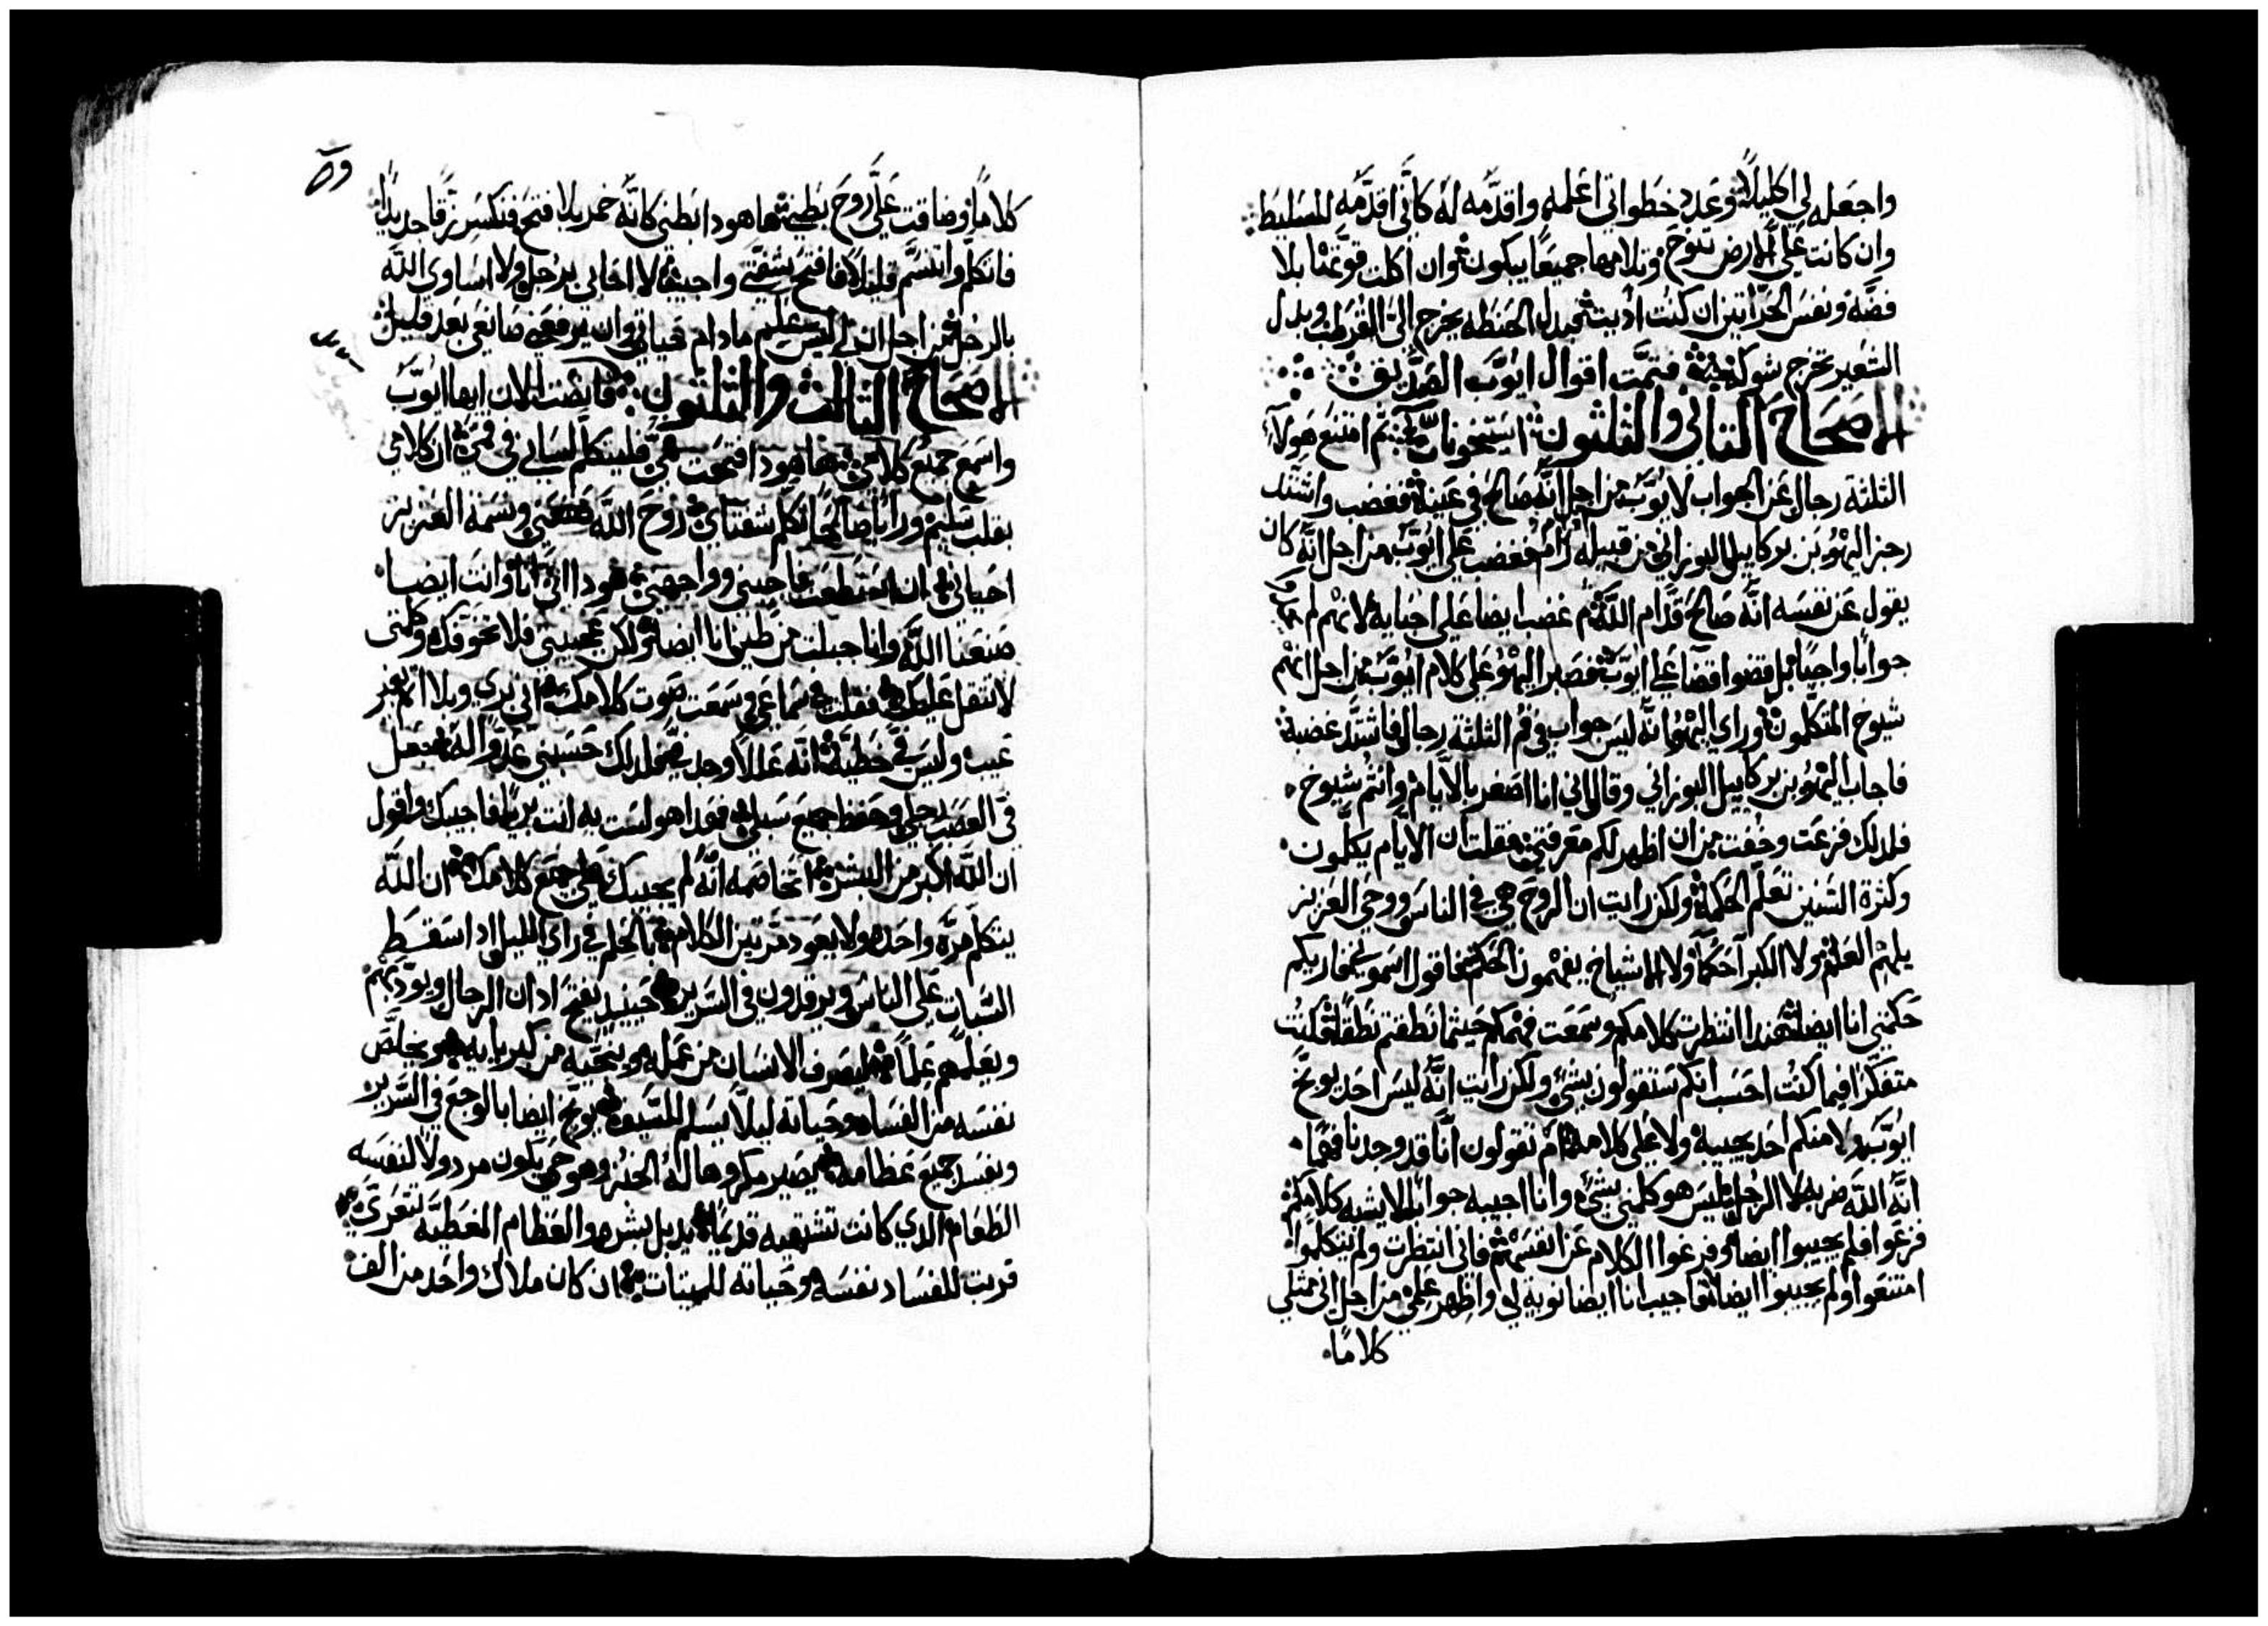 واجعله لي اكليلاً وعدد خطواتي اعلمه واقدّمه له كانّي اقدّمه للمسليط
وان كانت عليَّ الارض تنوح وتلامها جميعًا يبكون وان اكلت قوتها بلا
فضّه ونفس الحراتين ان كنت اديت فبدل الحنطه يخرج اليَّ القرطب وبدل
الشعير تخرج شوكه فتمّت اقوال ايوّب الصدّيق
الاصحاح الثاني والثلثون ثم امتنع هولآء
الثلثة رجال عن الجواب لايوّب من اجل انّه صالح في عينه فغضب واشتد
رجز اليهو بن بركاييل البوزاني من قبيله رام فغضب على ايوّب من اجل انّه كان
يقول عن نفسه انّه صالح قدّام اللّه ثم غضب ايضا على احبايه لانهم لم
جوابًا واجبًا بل قضوا قضا على ايوّب فصبر اليهو على كلام ايوّب من اجل انهم
شيوخ المتكلمون وراي اليهو انّه ليس جواب في فم الثلثة رجال فاشتدّ غضبه
فاجاب اليهو بن بركاييل البوزاني وقال اني انا اصغر بالايّام وانتم شيوخ
فلدلك فزعت وخفت من ان اظهر لكم معرفتي فقلت ان الايام يكلّمون
وكثرة السّنين تعلّم الحكمة ولكن رايت ان الروح هي في الناس ووحي العزيز
يلهم العلم ولا الكبرآ حكمآ ولا الاشياخ يفهمون الحكم فاقول اسمعو يخباريكم
حكمتي انا ايضا هندا انتظرت كلامكم وسمعت فهمكم حيثما نطقتم نطقًا وكنت
متفكرًا فيما كنت احسب انكم ستقولون شي ولكن رايت انّه ليس احد يوبّخ
ايوّب ولا منكم احد يجيبه ولا على كلامه ام تقولون انّا قد وجدنا فهمًا
انّه اللّه ضربه لا الرجل ليس هو كلمني بشيء وانا اجيبه جوابًا لا يشبه كلامكم
فزعوا فلم يجيبوا ايضا وفرغوا الكلام عن انفسهم فاني انتظرت ولم يتكلموا
امتنعوا ولم يجيبوا ايضا فاجيب انا ايضا نوبه لي واظهر علمي من اجل اني ممتلي
كلامًا
كلامًا وضاقت عليَّ روح بطني ها هودا بطني كانّه خمر بلا فتح فتكسر زقا جديدًا
فاتكلم واتنسّم قليلاً فافتح شفتي واجيب لا احابي برجل ولا اساوي اللّه
بالرجل من اجل اني ليس اعلم ما دام حياتي وان يرفعني صانعي بعد قليل
الاصحاح الثالث والثلثون فانصت الان ايها ايوّب
واسمع جميع كلامي ها هودا فتحت فمي فليتكلم لساني في فمي ان كلامي
بقلب سليم ورايًا صالحًا تكلم شفتاي روح اللّه صنعني ونسمة العزيز
احياني ان استطعت فاجيبني وواجهني هودا اني انا وانت ايضا
صنعنا اللّه وانا جبلت من طين انا ايضا ولكن عجيبي فلا تخوفك وكلمتي
لا تثقل عليك فقلت في سماعي وسمعت صوت كلامك اني بري وبلا اثم بغير
عيب وليس فيَّ خطيّة انّه عللاً وجد فيَّ فلدلك حسبني عدوًا له فجعل
في العصب رجلي وحفظ جميع سبلي فهدا هو لست به انت بريًا فاجيبك واقول
ان اللّه اكبر من البشر اتخاصمه انّه لم يجيبك على جميع كلامك ان اللّه
يتكلم مرّه واحده ولا يعود مرّتين الكلام بالحلم في راي الليل ادا سقط
السّبات على الناس ويرقدون في السّرير حينيد يفتح ادان الرجال ويودّبهم
ويعلّمهم علمًا ليصرف الانسان من عمله وينجّيه من كبريايه ويخلّص
نفسه من الفساد وحياته ليلاّ يسلم للسّيف ويوبّخ ايضا بالوجع في السّرير
ونفسد جميع عظامه يصير مكروها له الخبز وهو حي يكون مردولاً لنفسه
الطعام الدي كانت تشتهيه قديمًا يدبل بشره والعظام المغطيّه تتعرّى
قربت للفساد نفسه وحياته للميتات ان كان ملاك واحد من الف